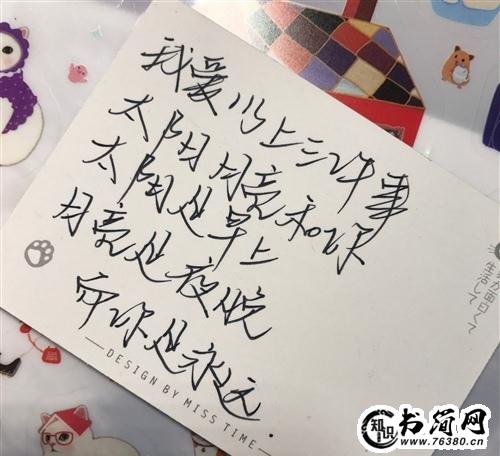 我爱上三件事
太阳月亮和你
太阳是早上
月亮是夜晚
你是永远
DESIGN BY MISS TIME
知识
书简网
www.76380.cn